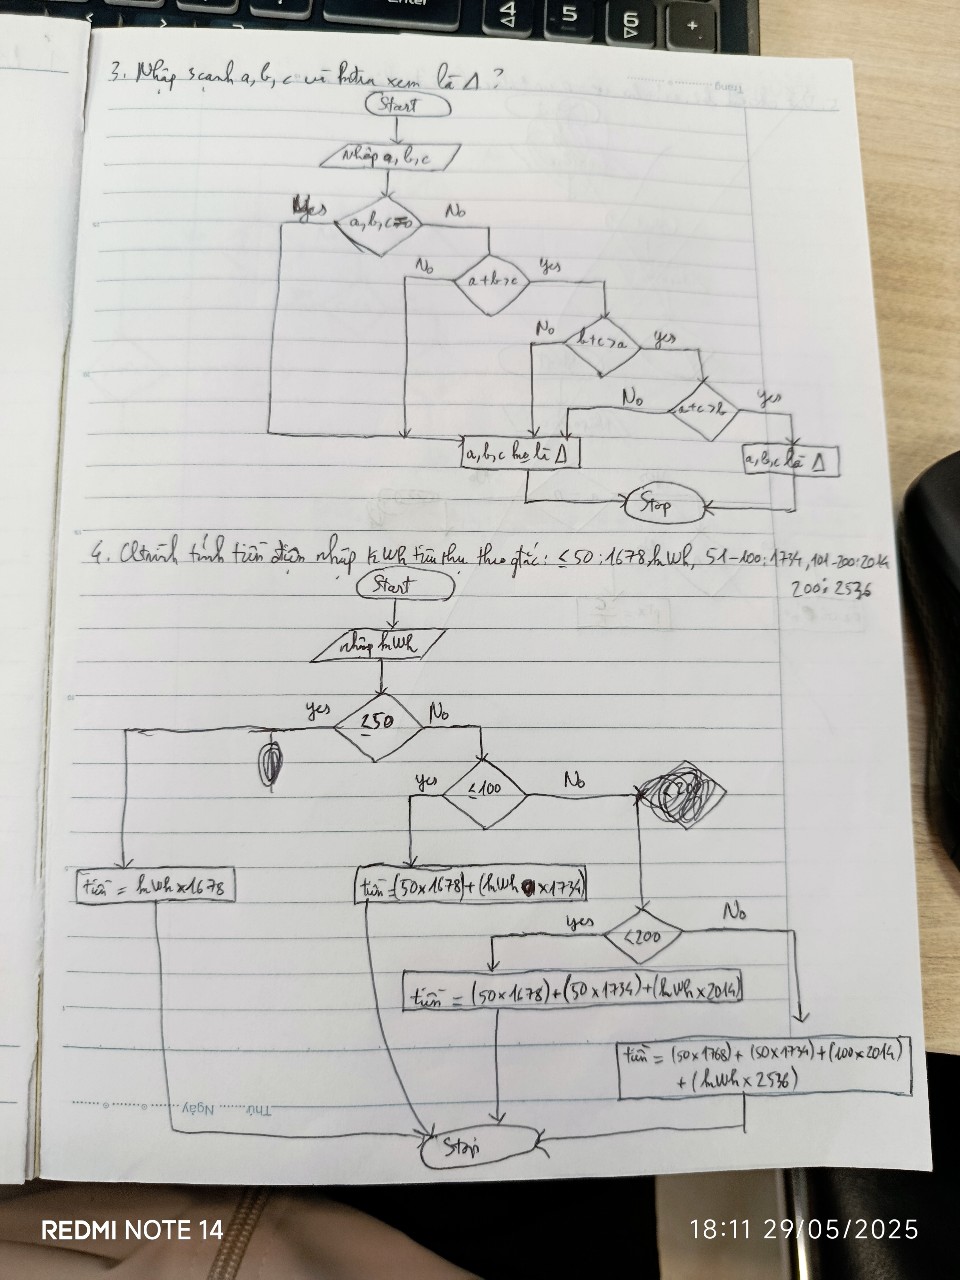 Enter
4
5
6
+
3. Nhập 3 cạnh a, b, c và ktra xem là Δ ?
Start
Nhập a, b, c
Yes
a, b, c = 0
No
No
a + b > c
Yes
No
b + c > a
Yes
No
a + c > b
Yes
a, b, c ko là Δ
a, b, c là Δ
Stop
4. Ctrình tính tiền điện nhập kWh tiêu thụ theo qtắc: ≤ 50 : 1678/kWh, 51 - 100 : 1734, 101 - 200 : 2014
200 : 2536
Start
nhập kWh
yes
≤50
No
yes
≤100
No
tiền = kWh x 1678
tiền = (50 x 1678) + (kWh x 1734)
yes
<200
No
tiền = (50 x 1678) + (50 x 1734) + (kWh x 2014)
tiền = (50 x 1768) + (50 x 1734) + (100 x 2014)
+ (kWh x 2536)
Thứ ........ Ngày ........
Stop
REDMI NOTE 14
18:11 29/05/2025